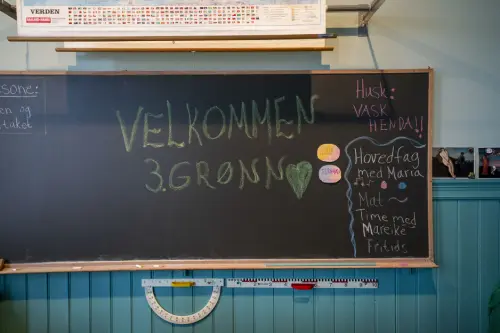 VERDEN
sone:
en og
VELKOMMEN
3.GRØNN
Husk:
VASK
HENDA!!
Hovedfag
med Maria
Mat
Time med
Mareike
Fritids